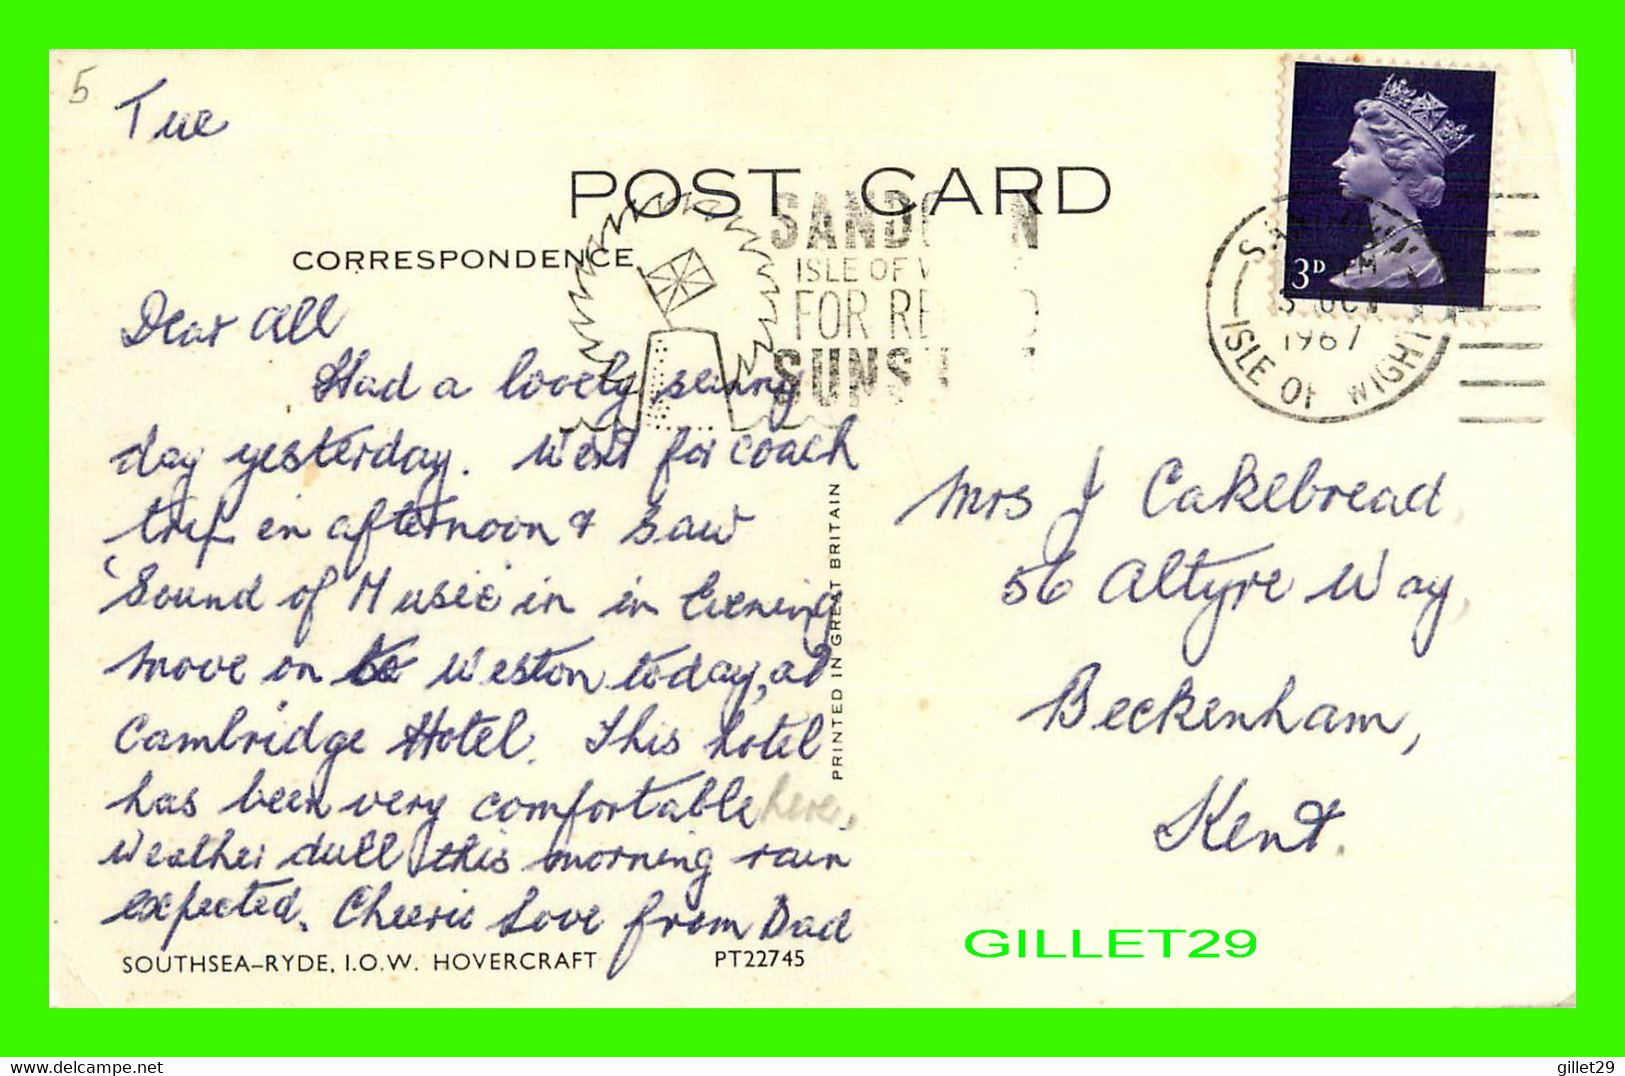 5
Tue
POST CARD
CORRESPONDENCE
SAND
ISLE OF
FOR RE
SUNS
3D
OCT
1967
ISLE OF WIGHT
Dear All
Had a lovely sunny
day yesterday. Went for coach
trip in afternoon & saw
'Sound of Music' in in Evening
move on to Weston today, at
Cambridge Hotel. This hotel
has been very comfortable here.
Weather dull this morning rain
expected. Cheerie Love from Dad
SOUTHSEA-RYDE, I.O.W. HOVERCRAFT PT22745
PRINTED IN GREAT BRITAIN
Mrs J Cakebread
56 Altyre Way,
Beckenham,
Kent.
GILLET29
delcampe.net
gillet29